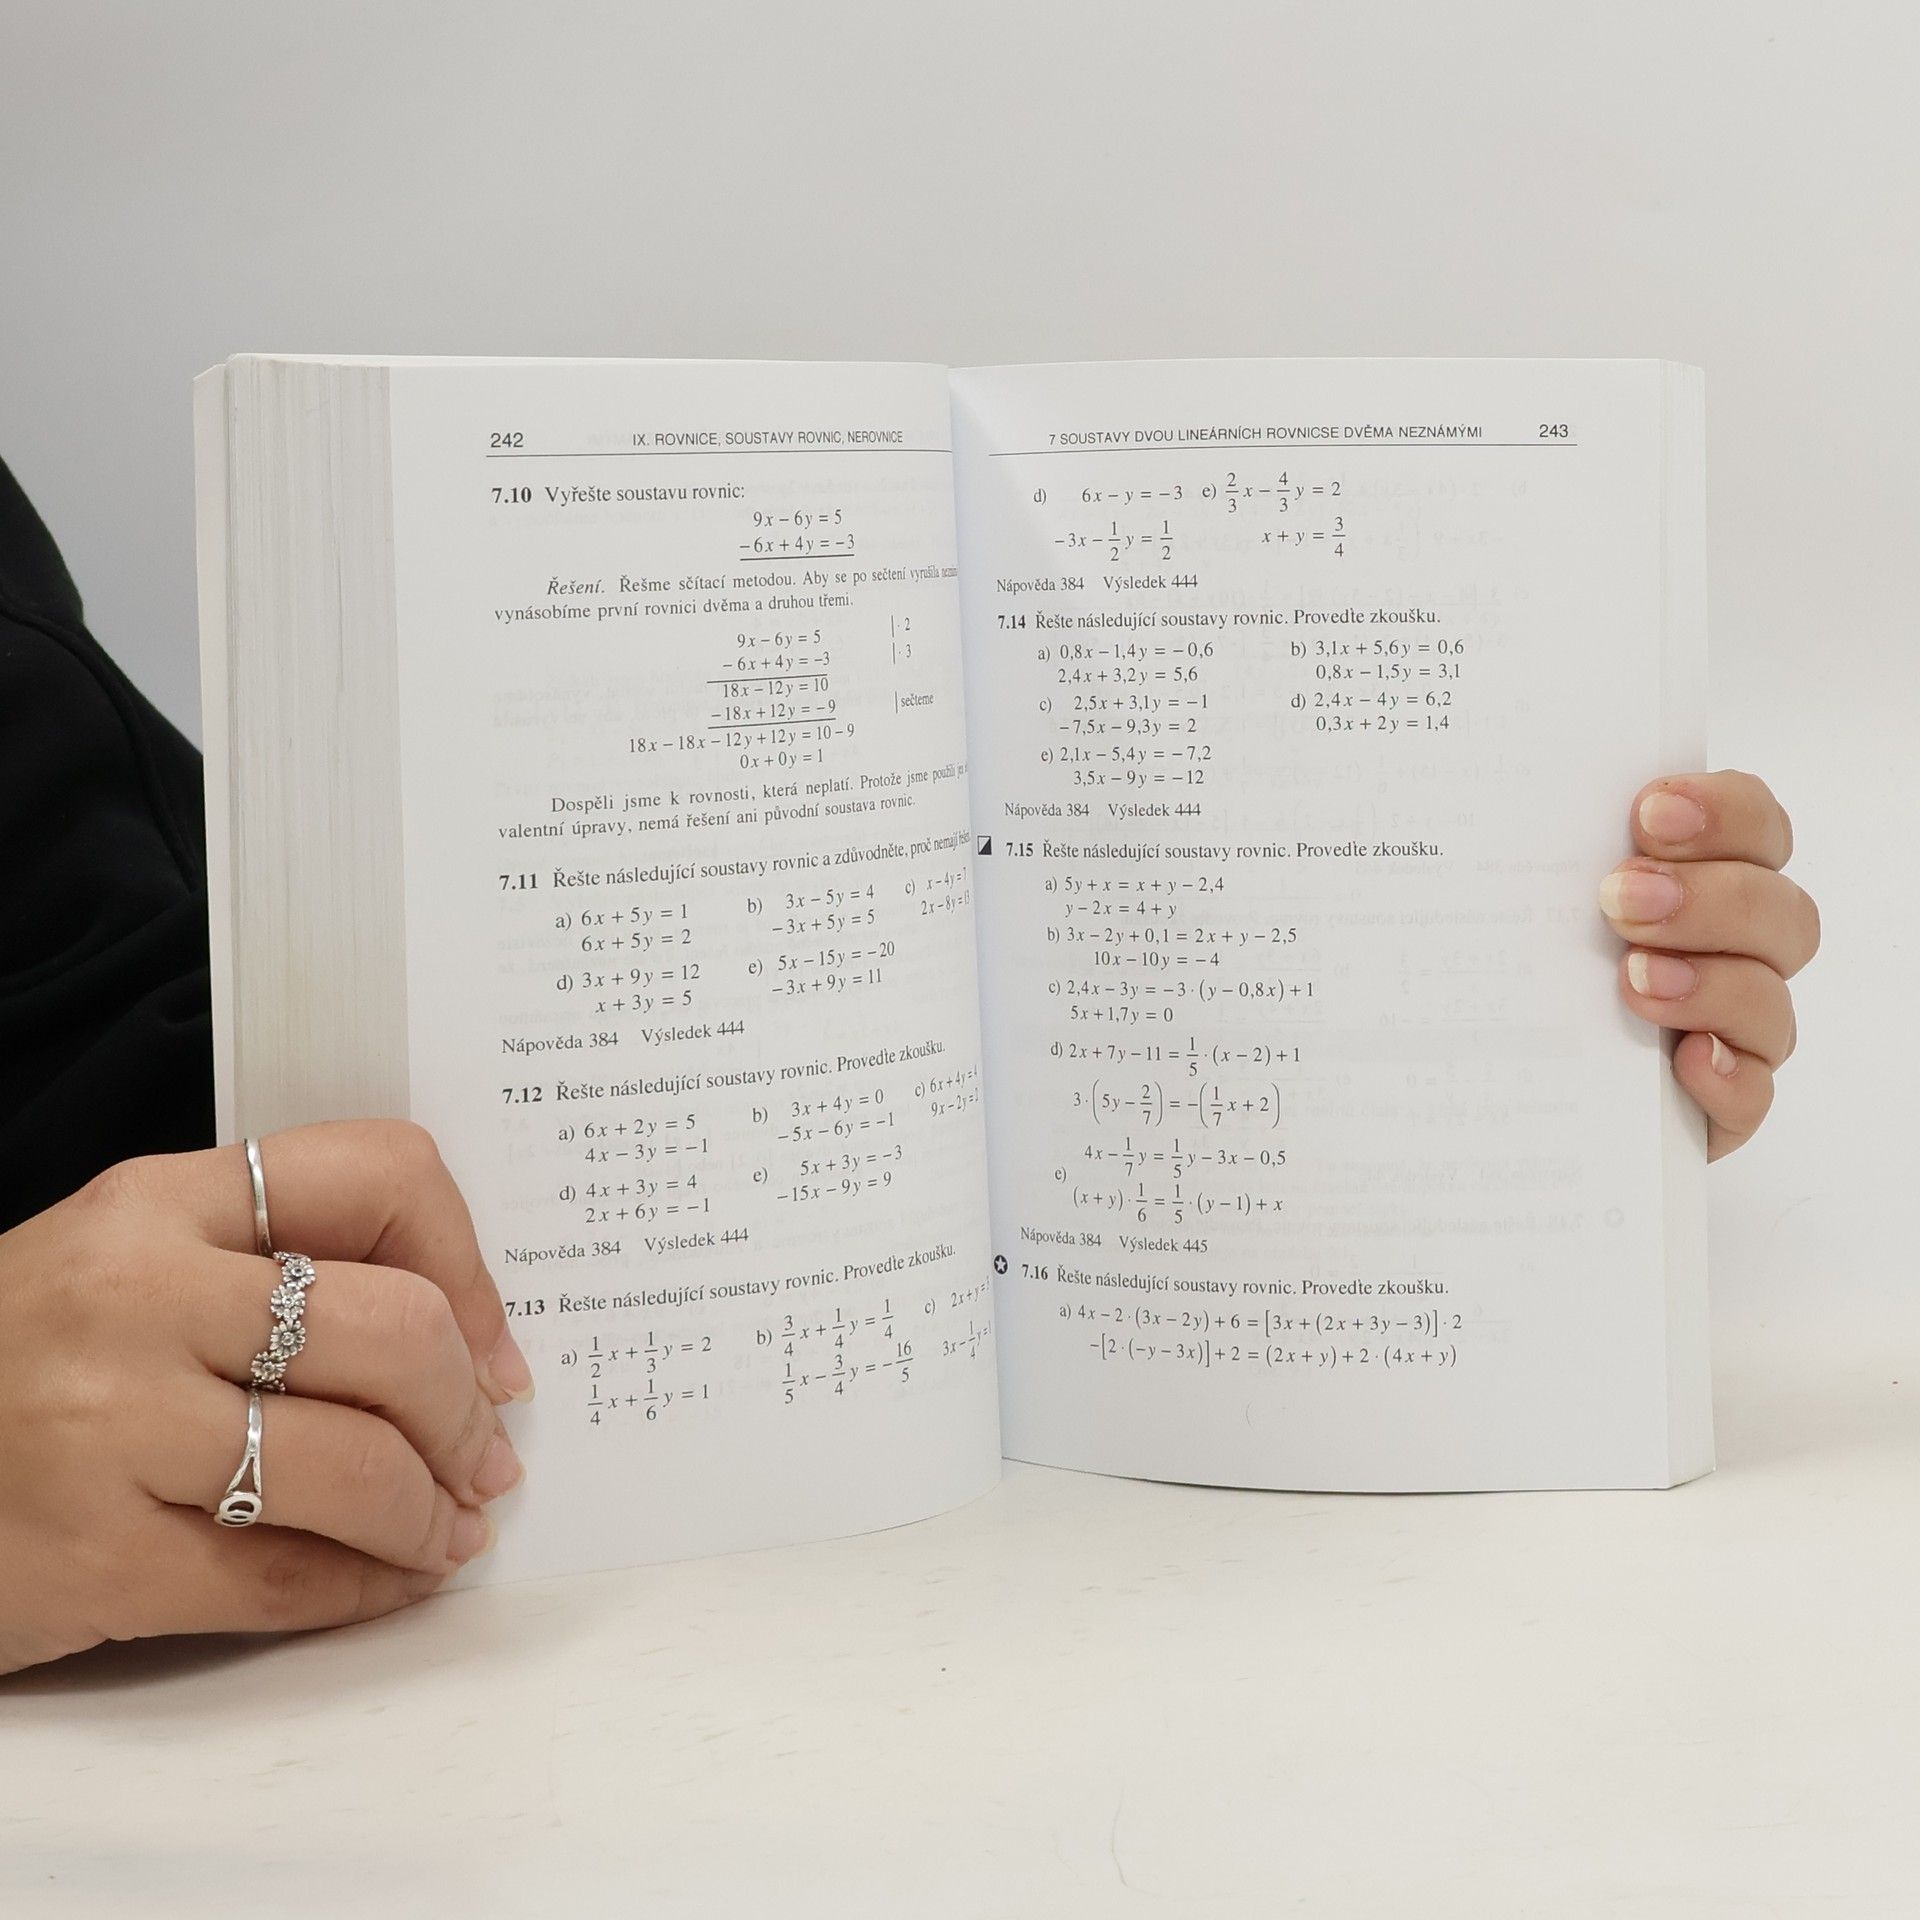 242 IX. ROVNICE, SOUSTAVY ROVNIC, NEROVNICE
7.10 Vyřešte soustavu rovnic:
9x − 6y = 5
−6x + 4y = −3
Řešení. Řešme sčítací metodou. Aby se po sečtení vyrušila
vynásobíme první rovnici dvěma a druhou třemi.
9x − 6y = 5 | · 2
−6x + 4y = −3 | · 3
18x − 12y = 10
−18x + 12y = −9 | sečteme
18x − 18x − 12y + 12y = 10 − 9
0x + 0y = 1
Dospěli jsme k rovnosti, která neplatí. Protože jsme použili
valentní úpravy, nemá řešení ani původní soustava rovnic.
7.11 Řešte následující soustavy rovnic a zdůvodněte, proč nemají
a) 6x + 5y = 1 b) 3x − 5y = 4 c) x − 4y = 7
6x + 5y = 2 −3x + 5y = 5 2x − 8y = 13
d) 3x + 9y = 12 e) 5x − 15y = −20
x + 3y = 5 −3x + 9y = 11
Nápověda 384 Výsledek 444
7.12 Řešte následující soustavy rovnic. Proveďte zkoušku.
a) 6x + 2y = 5 b) 3x + 4y = 0 c) 6x + 4y = 4
4x − 3y = −1 −5x − 6y = −1 9x − 2y = 2
d) 4x + 3y = 4 e) 5x + 3y = −3
2x + 6y = −1 −15x − 9y = 9
Nápověda 384 Výsledek 444
7.13 Řešte následující soustavy rovnic. Proveďte zkoušku.
a) 1/2 x + 1/3 y = 2 b) 3/4 x + 1/4 y = 1/4 c) 2x + y =
1/4 x + 1/6 y = 1 1/5 x − 3/4 y = −16/5 3x − 1/4 y =
7 SOUSTAVY DVOU LINEÁRNÍCH ROVNICSE DVĚMA NEZNÁMÝMI 243
d) 6x − y = −3 e) 2/3 x − 4/3 y = 2
−3x − 1/2 y = 1/2 x + y = 3/4
Nápověda 384 Výsledek 444
7.14 Řešte následující soustavy rovnic. Proveďte zkoušku.
a) 0,8x − 1,4y = −0,6 b) 3,1x + 5,6y = 0,6
2,4x + 3,2y = 5,6 0,8x − 1,5y = 3,1
c) 2,5x + 3,1y = −1 d) 2,4x − 4y = 6,2
−7,5x − 9,3y = 2 0,3x + 2y = 1,4
e) 2,1x − 5,4y = −7,2
3,5x − 9y = −12
Nápověda 384 Výsledek 444
7.15 Řešte následující soustavy rovnic. Proveďte zkoušku.
a) 5y + x = x + y − 2,4
y − 2x = 4 + y
b) 3x − 2y + 0,1 = 2x + y − 2,5
10x − 10y = −4
c) 2,4x − 3y = −3 · (y − 0,8x) + 1
5x + 1,7y = 0
d) 2x + 7y − 11 = 1/5 · (x − 2) + 1
3 · (5y − 2/7) = −(1/7 x + 2)
e) 4x − 1/7 y = 1/5 y − 3x − 0,5
(x + y) · 1/6 = 1/5 · (y − 1) + x
Nápověda 384 Výsledek 445
7.16 Řešte následující soustavy rovnic. Proveďte zkoušku.
a) 4x − 2 · (3x − 2y) + 6 = [3x + (2x + 3y − 3)] · 2
−[2 · (−y − 3x)] + 2 = (2x + y) + 2 · (4x + y)